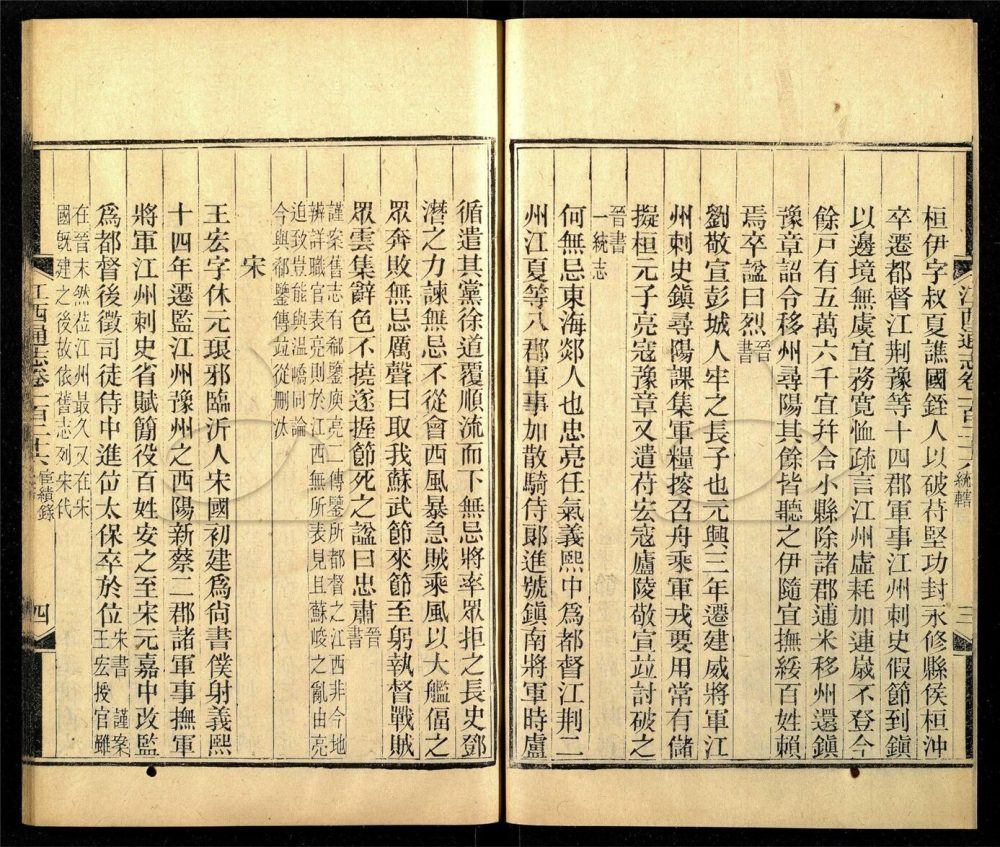 桓伊字叔夏譙國銍人以破苻堅功封永修縣侯桓沖
卒遷都督江荆豫等十四郡軍事江州刺史假節到鎭
以邊境無虞宜務寬恤疏言江州虛耗加連歲不登今
餘戶有五萬六千宜幷合小縣除諸郡逋米移州還鎭
豫章詔令移州尋陽其餘皆聽之伊隨宜撫綏百姓賴
焉卒諡曰烈晉書
劉敬宣彭城人牢之長子也元興三年遷建威將軍江
州刺史鎭尋陽課集軍糧搜召舟乘軍戎要用常有儲
擬桓元子亮寇豫章又遣苻宏寇廬陵敬宣竝討破之
晉書
一統志
何無忌東海郯人也忠亮任氣義熙中爲都督江荆二
州江夏等八郡軍事加散騎侍郞進號鎭南將軍時盧
江西通志卷一百二十六 統轄 三
循遣其黨徐道覆順流而下無忌將率眾拒之長史鄧
潛之力諫無忌不從會西風暴急賊乘風以大艦偪之
眾奔敗無忌厲聲曰取我蘇武節來節至躬執督戰賊
眾雲集辭色不撓遂握節死之諡曰忠肅晉書
謹案舊志有郗鑒庾亮二傳鑒所都督之江西非今地
辨詳職官表亮則於江西無所表見且蘇峻之亂由亮
迫致豈能與溫嶠同論
今與郗鑒傳竝從刪汰
宋
王宏字休元琅邪臨沂人宋國初建爲尙書僕射義熙
十四年遷監江州豫州之西陽新蔡二郡諸軍事撫軍
將軍江州刺史省賦簡役百姓安之至宋元嘉中改監
爲都督後徵司徒侍中進位太保卒於位宋書 謹案
王宏授官雖
在晉末然莅江州最久又在宋
國旣建之後故依舊志列宋代
江西通志卷一百二十六 宦績錄 四